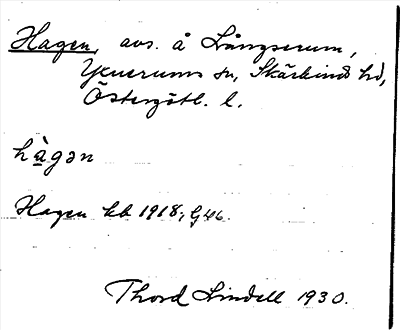 Hagen, avs. å Långserum,
Yxnerums sn, Skärkinds hd,
Östergötl. l.
hàgən
Hagen kb 1918, G46.
Thord Lindell 1930.